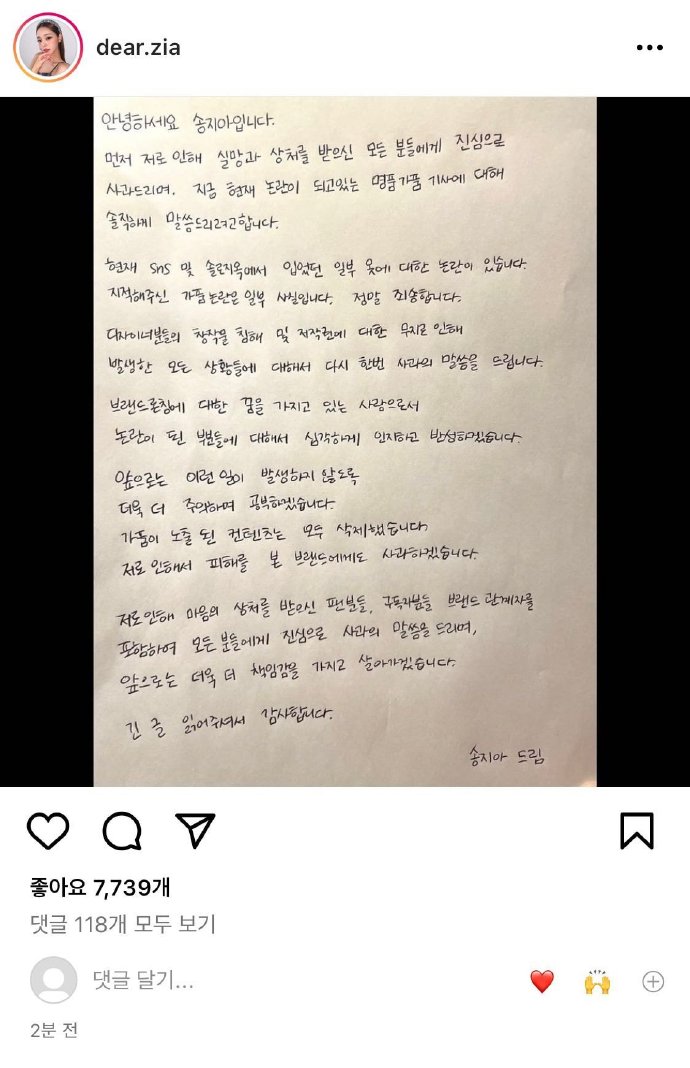 dear.zia
안녕하세요 송지아입니다.
먼저 저로 인해 실망과 상처를 받으신 모든 분들에게 진심으로
사과드리며, 지금 현재 논란이 되고있는 명품가품 기사에 대해
솔직하게 말씀드리려고합니다.
현재 SNS 및 솔로지옥에서 입었던 일부 옷에 대한 논란이 있습니다.
지적해주신 가품논란은 일부 사실입니다. 정말 죄송합니다.
디자이너분들의 창작물 침해 및 저작권에 대한 무지로 인해
발생한 모든 상황들에 대해서 다시 한번 사과의 말씀을 드립니다.
브랜드론칭에 대한 꿈을 가지고 있는 사람으로서
논란이 된 부분들에 대해서 심각하게 인지하고 반성하겠습니다.
앞으로는 이런 일이 발생하지 않도록
더욱 더 주의하며 공부하겠습니다.
가품이 노출 된 컨텐츠는 모두 삭제했습니다
저로 인해서 피해를 본 브랜드에게도 사과하겠습니다.
저로인해 마음의 상처를 받으신 팬분들, 구독자분들 브랜드 관계자를
포함하여 모든 분들에게 진심으로 사과의 말씀을 드리며,
앞으로는 더욱 더 책임감을 가지고 살아가겠습니다.
긴 글 읽어주셔서 감사합니다.
송지아 드림
좋아요 7,739개
댓글 118개 모두 보기
댓글 달기...
2분 전